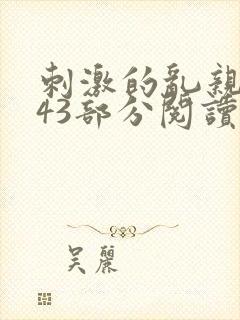 刺激的乱親
43部分閱讀
吴麗